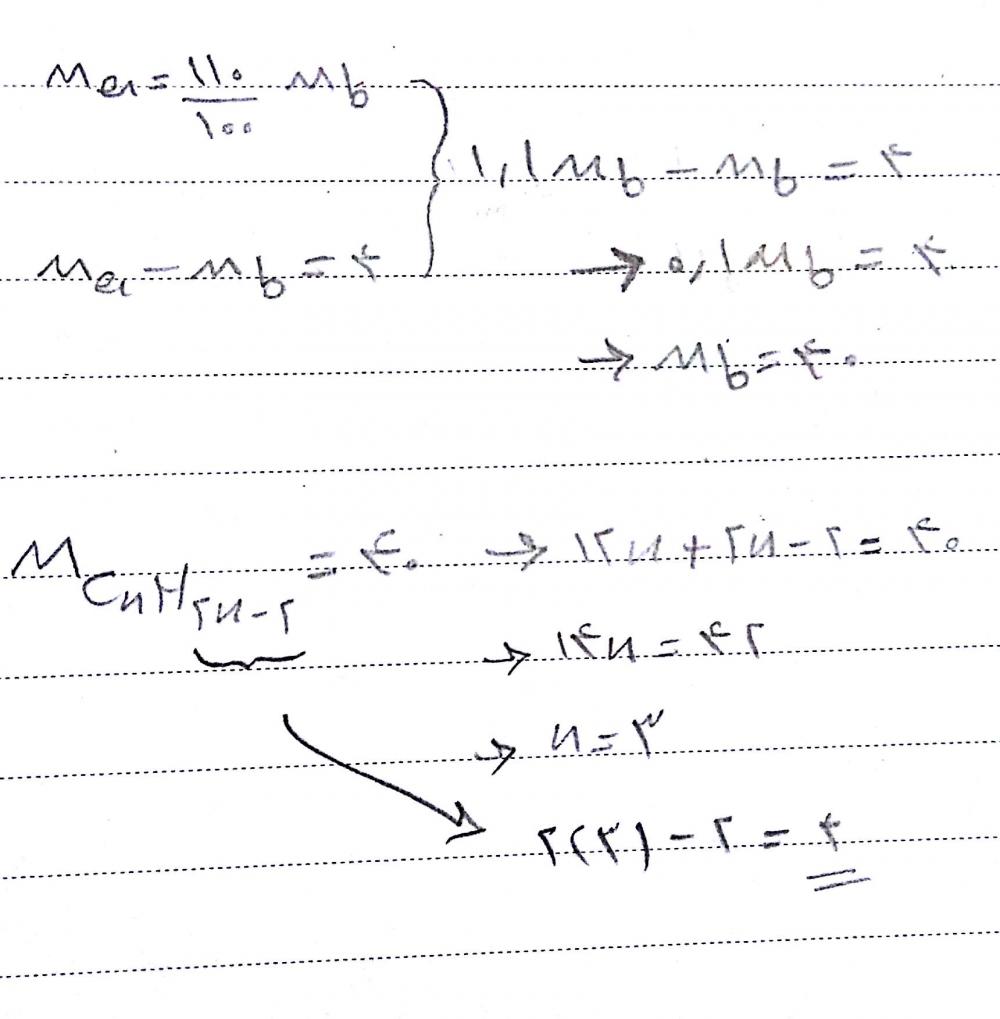 Ma = ۱۱۰/۱۰۰ Mb
۱,۱Mb − Mb = ۴
Ma − Mb = ۴
→ ۰,۱Mb = ۴
→ Mb = ۴۰
M CnH۲n−۲ = ۴۰ → ۱۲n + ۲n − ۲ = ۴۰
→ ۱۴n = ۴۲
→ n = ۳
۲(۳) − ۲ = ۴